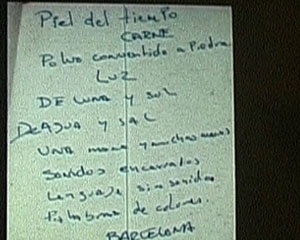 Piel del tiempo
CARNE
Polvo convertido a Piedra
LUZ
DE LUNA Y SOL
DE AGUA Y SAL
UNA mano y muchas manos
Sonidos encerrados
Lenguaje sin sonidos
Palabras de colores.
BARCELONA